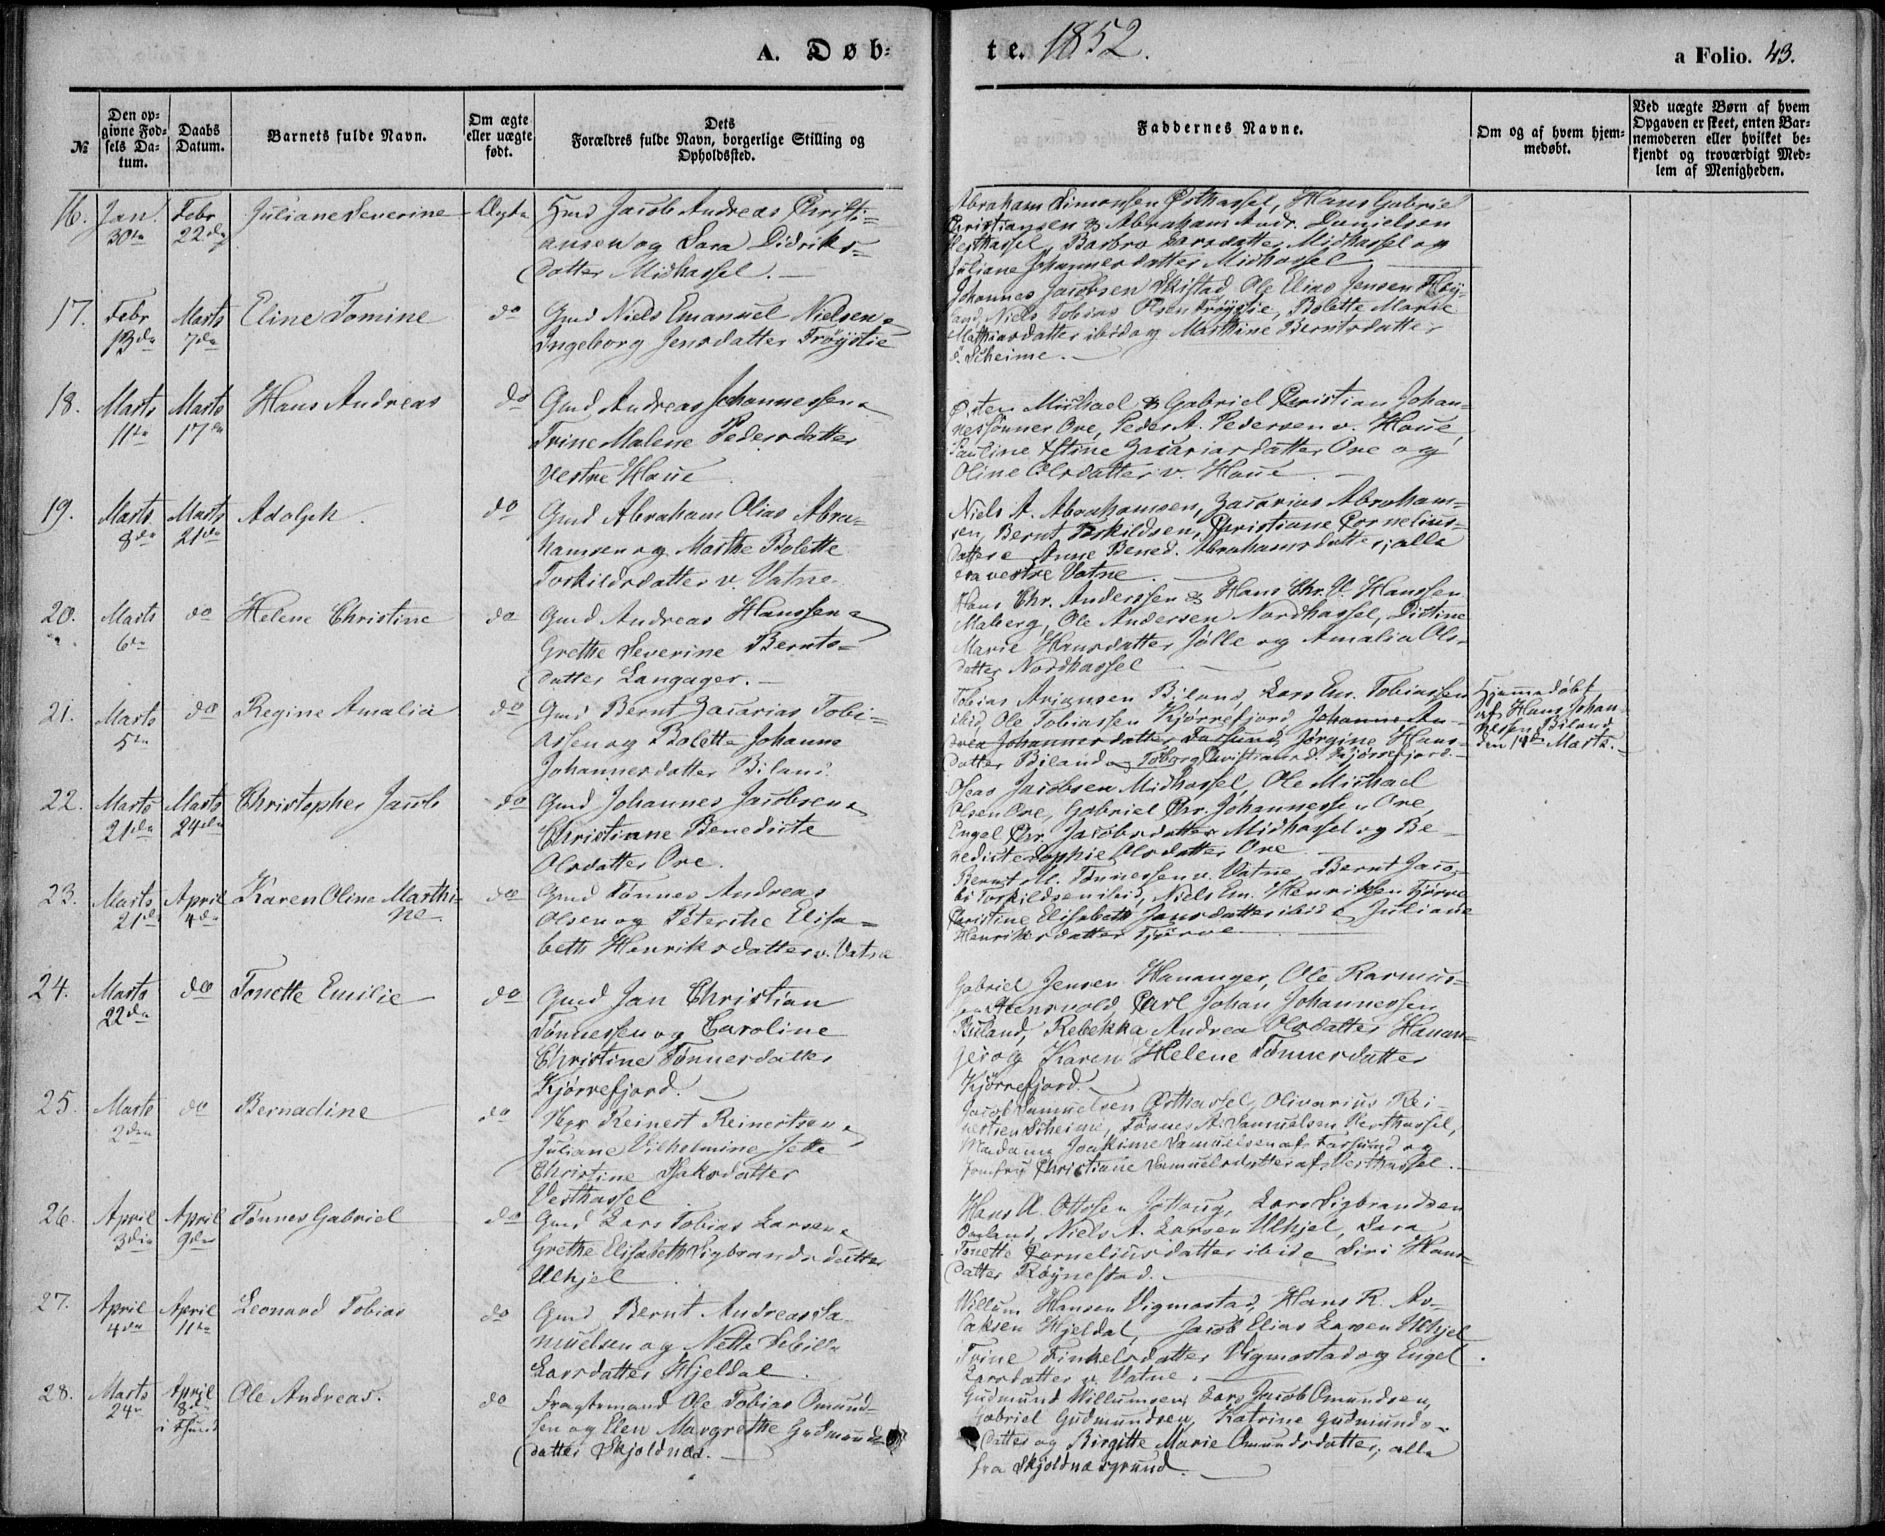 A. Døb-
te. 1852.
a Folio. 43.
№
Den op-
givne Fød-
sels Da-
tum.
Daabs
Datum.
Barnets fulde Navn.
Om ægte
eller uægte
født.
Dets
Forældres fulde Navn, borgerlige Stilling og
Opholdssted.
Faddernes Navne.
Om og af hvem hjem-
medøbt.
Ved uægte Børn af hvem
Opgaven er skeet, enten Bar-
nemoderen eller hvilket be-
kjendt og troværdigt Med-
lem af Menigheden.
16. Jan. 30te Febr 22de Juliane Severine Ægte
Hmd Jacob Andreas Christi-
ansen og Sara Didriks-
datter Midhassel.
Abraham Simonsen Østhassel, Hans Gabriel
Christiansen & Abraham Andr. Danielsen
Vesthassel, Barbro Larsdatter Midhassel og
Juliane Johannesdatter Midhassel
17. Febr 13de Marts 7de Eline Tomine do
Gmd Niels Emanuel Nielsen &
Ingeborg Jensdatter Trøjstie
Johannes Jacobsen Skistad, Ole Elias Jensen Høy-
land, Niels Tobias Olsen Trøystie, Bolette Marie
Mathiasdatter ibid og Marthine Berntsdatter
Scheime.
18. Marts 11te Marts 17de Hans Andreas do
Gmd Andreas Johannessen &
Trine Malene Pedersdatter
Vestre Haue
Michael & Gabriel Christian Johan-
nessønner Ore, Peder A. Pedersen v. Haue,
Pauline Zacariasdatter Ore og
Oline Olsdatter v. Haue
19. Marts 8de Marts 21de Adolph do
Gmd Abraham Olias Abra-
hamsen og Marthe Bolette
Torkildsdatter v. Vatne
Niels A. Abrahamsen, Zacarias Abraham-
sen, Bernt Torkildsen, Christiane Cornelius-
datter & Anne Bened. Abrahamsdatter, alle
fra vestre Vatne.
20. Marts 6te do Helene Christine do
Gmd Andreas Hanssen &
Grethe Severine Bernts-
datter Langager.
Hans Chr. Anderssen & Hans Chr. V. Hanssen
Maberg, Ole Andersen Nordhassel,
Marie Hansdatter Jølle og Amalia Ols-
datter Nordhassel
21. Marts 5te do Regine Amalia do
Gmd Bernt Zacarias Tobi-
assen og Bolette Johanne
Johannesdatter Biland
Tobias Arjansen Biland, Lars Em. Tobiassen
ibid, Ole Tobiassen Kjørrefjord, Johanne An-
drea Johannesdatter Farsund, Jørgine Hans-
datter Biland og Christiansd. Kjørrefjord.
Hjemmedøbt
af Hans Johan-
nessen Biland
den 14de Marts.
22. Marts 21de Marts 24de Christopher Jacob do
Gmd Johannes Jacobsen &
Christiane Benedicte
Olsdatter Ore.
Jacobsen Midhassel, Ole Michael
Olsen Ore, Gabriel Chr. Johannessen Ore,
Engel Chr. Jacobsdatter Midhassel og Be-
nedicte Sophie Olsdatter Ore
23. Marts 21de April 4de Karen Oline Marthi-
ne do
Gmd Tønnes Andreas
Olsen og Peterche Elisa-
beth Henriksdatter v. Vatne
Bernt M. Tønnessen v. Vatne, Bernt Jaco-
bs Torkildsen ibid, Niels Em. Henriksen Tjørve
Christine Elisabeth Jansdatter ibid & Juliane
Henriksdatter Tjørve
24. Marts 22de do Tonette Emilie do
Gmd Jan Christian
Tønnessen og Caroline
Christine Tønnesdatter
Kjørrefjord.
Gabriel Jensen Hananger, Ole Rasmus-
sen Steensvold, Carl Johan Johannessen
Buland, Rebekka Andrea Olsdatter Hanan-
ger og Karen Helene Tønnesdatter
Kjørrefjord.
25. Marts 2den do Bernadine do
Hr Reinert Reinertsen &
Juliane Vilhelmine Jette
Christine Isaksdatter
Vesthassel
Jacob Samuelsen Østhassel, Olivarius Rei-
nertsen Scheime, Tønnes A. Samuelsen Vesthassel,
Madame Joakime Samuelsen af Farsund og
Jomfru Christiane Samuelsdatter af Vesthassel.
26. April 3die April 9de Tønnes Gabriel do
Gmd Lars Tobias Larsen &
Grethe Elisabeth Sigbrandsdatter
Ulhjel
Hans A. Ottosen Jøllaug, Lars Sigbrandsen
Niels A. Larsen Ulhjel, Sara
Tonette Corneliusdatter ibid & Siri Hans-
datter Røynestad.
27. April 4de April 11te Leonard Tobias do
Gmd Bernt Andreas Sa-
muelsen og Nette Sebille
Larsdatter Hjeldal.
Willum Hansen Vigmostad, Hans R. As-
laksen Hjeldal, Jacob Elias Larsen Ulhjel
Trine Finkelsdatter Vigmostad og Engel
Larsdatter v. Vatne.
28. Marts 24de April 8de
i Fsund Ole Andreas. do
Fragtemand Ole Tobias Omund-
sen og Elen Margrethe Gudmunds-
datter Skjoldnæs.
Gudmund Willumsen, Lars Jacob Omundsen,
Gabriel Gudmundsen, Katrine Gudmunds-
datter og Birgitte Marie Omundsdatter, alle
fra Skjoldnæsgrund.